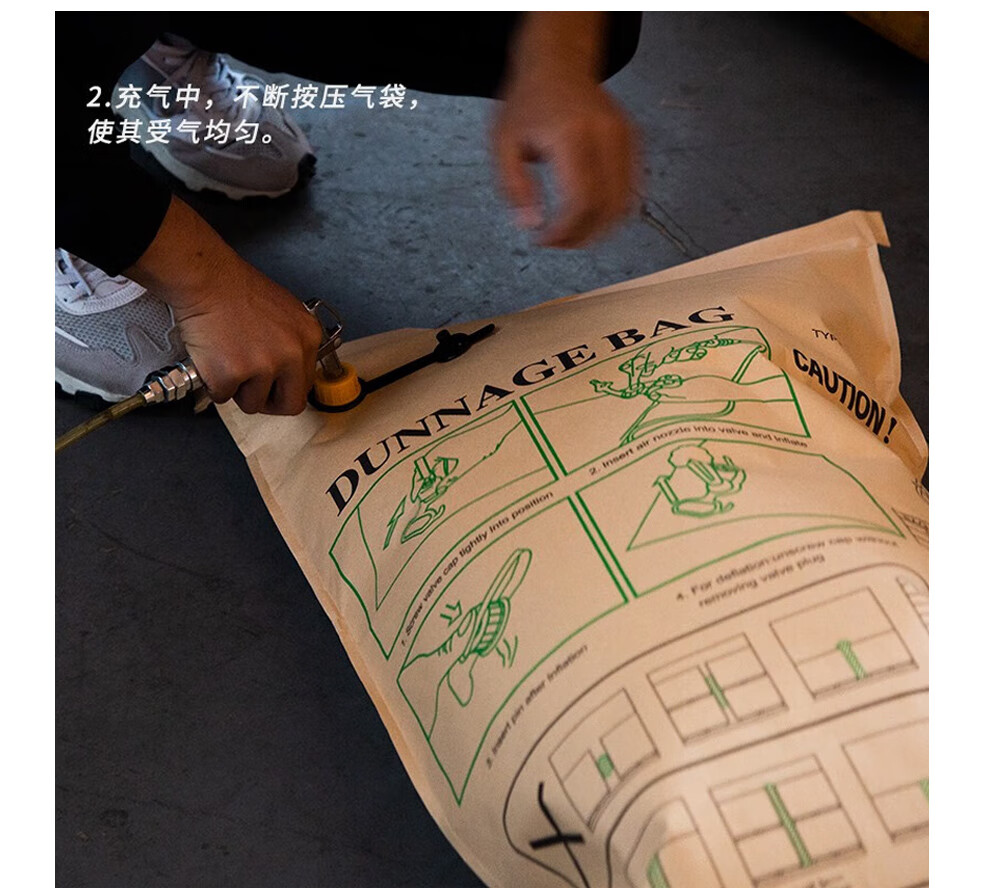 2.充气中，不断按压气袋，
使其受气均匀。
DUNNAGE BAG
CAUTION!
2. Insert air nozzle into valve and inflate
1. Screw valve cap tightly into position
4. For deflation:unscrew cap without
removing valve plug
3. Insert pin after inflation